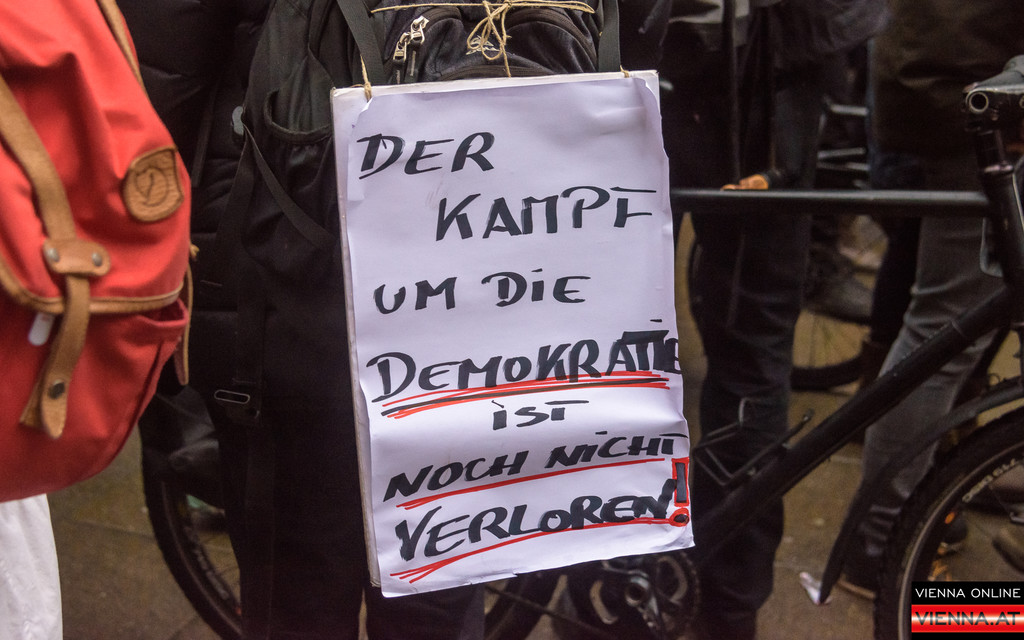 DER
KAMPF
UM DIE
DEMOKRATIE
IST
NOCH NICHT
VERLOREN!
VIENNA ONLINE
VIENNA.AT